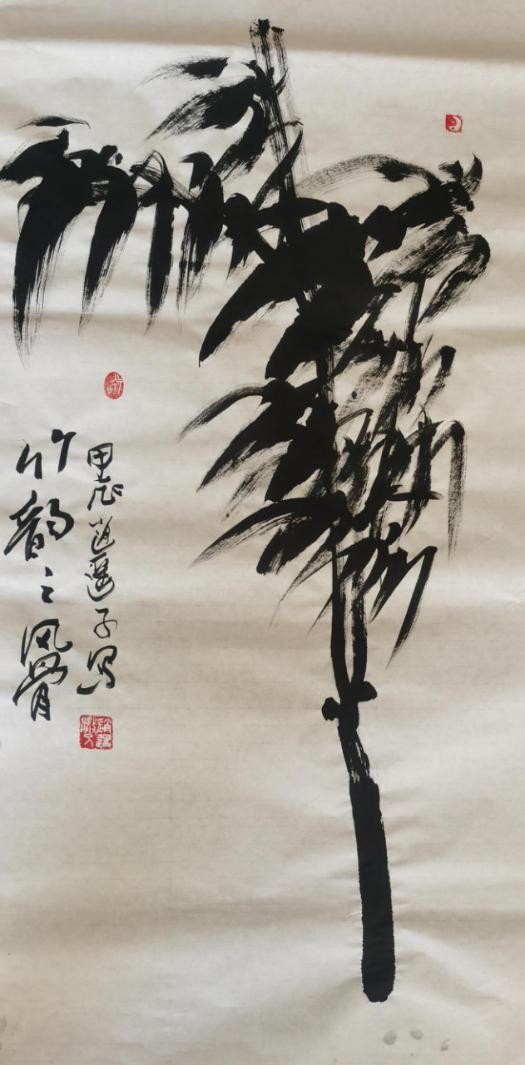 竹韵之风骨
甲辰逍遥子写